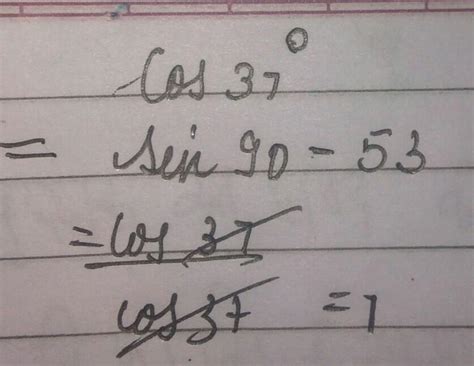 cos 37°
= sin 90 - 53
= cos 37
cos 37 = 1